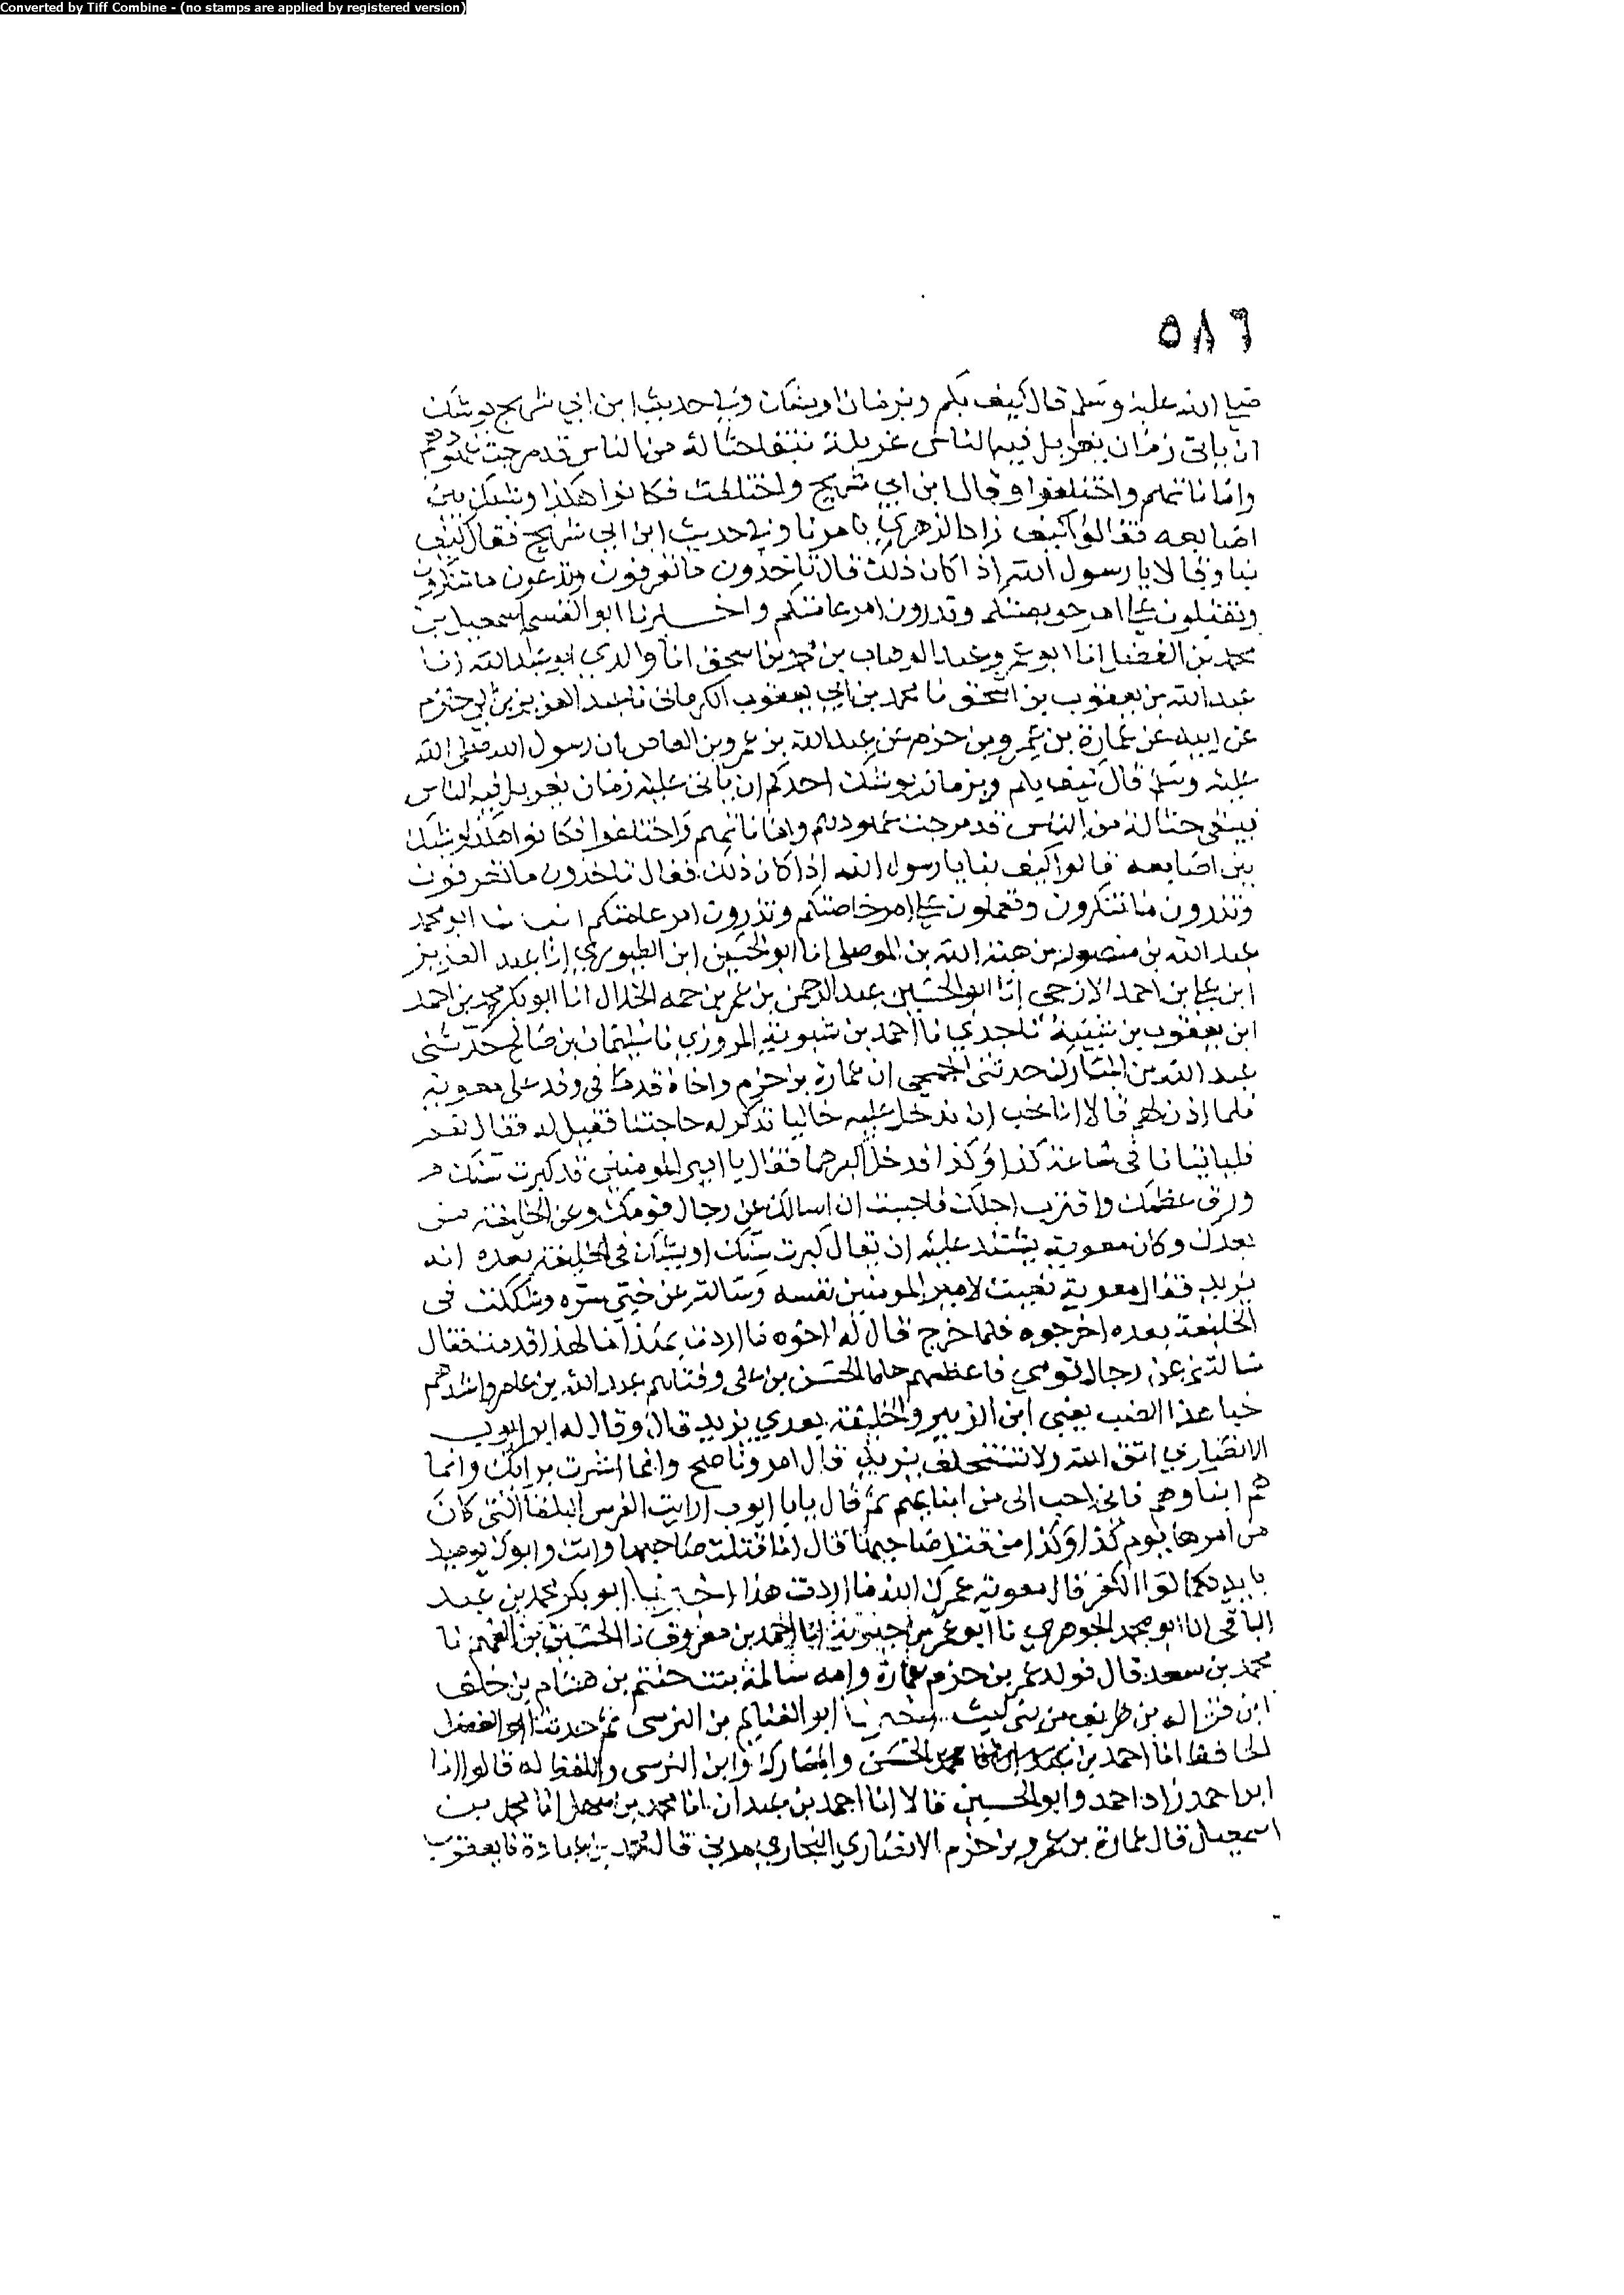 Converted by Tiff Combine - (no stamps are applied by registered version)
٥٨٦
صلى الله عليه وسلم قال كيف بكم وبزمان او يشكان وفي حديث ابن ابي شريح يوشك
ان ياتي زمان يغربل فيه الناس غربلة تبقا حثالة من الناس قد مرجت عهودهم
واماناتهم واختلفوا وقال ابن ابي شريح واختلفت فكانوا هكذا وشبك بين
اصابعه فقالوا كيف زاد الزهري تامرنا وفي حديث ابن ابي شريح فقال كيف
بنا وقالا يا رسول الله اذا كان ذلك قال تاخذون ما تعرفون وتدعون ما تنكرون
وتقبلون على امر خويصتكم وتذرون امر عامتكم واخبرنا ابو القسم اسمعيل بن
محمد بن الفضل انا ابو عمرو عبد الوهاب بن محمد بن اسحق انا والدي ابو عبد الله انا
عبد الله بن يعقوب بن اسحق نا محمد بن ابي يعقوب الكرماني نا عبد العزيز بن ابي حازم
عن ابيه عن عمارة بن عمرو بن حزم عن عبد الله بن عمرو بن العاص ان رسول الله صلى الله
عليه وسلم قال كيف بكم وبزمان يوشك احدكم ان ياتي عليه زمان يغربل فيه الناس
فيبقى حثالة من الناس قد مرجت عهودهم واماناتهم واختلفوا فكانوا هكذا وشبك
بين اصابعه قالوا كيف بنا يا رسول الله اذا كان ذلك فقال تاخذون ما تعرفون
وتذرون ما تنكرون وتعملون على امر خاصتكم وتذرون امر عامتكم انبانا ابو محمد
عبد الله بن منصور بن هبة الله بن الموصلي انا ابو الحسين ابن الطيوري انا عبد العزيز
ابن علي بن احمد الازجي انا ابو الحسين عبد الرحمن بن عمر بن حمه الخلال انا ابو بكر محمد بن احمد
ابن يعقوب بن شيبة نا جدي نا احمد بن شبوية المروزي نا سليمان بن صالح حدثني
عبد الله بن المبارك حدثني الجمحي ان عمارة بن حزم واخاه قدما في وفد على معوية
فلما اذن لهم قالا انا نحب ان ندخل عليه خاليا نذكر له حاجتنا فقيل له فقال نعم
فلياتيانا في ساعة كذا وكذا فدخل اكبرهما فقال يا امير المومنين قد كبرت سنك
ورق عظمك واقترب اجلك فاحببت ان اسالك عن رجال قومك وعن الخليفة من
بعدك وكان معوية يشتد عليه ان يقال كبرت سنك او يشك في الخليفة بعده انه
يزيد فقال معوية نعيت لامير المومنين نفسه وسالته عن خبي سره وشككت في
الخليفة بعده اخرجوه فلما خرج قال له اخوه ما اردت بهذا ما لهذا قدمنا فقال
سالتني عن رجال قومي فاعظمهم حلما الحسن بن علي وفتاهم عبد الله بن عامر واشدهم
خبا هذا الضب يعني ابن الزبير والخليفة بعدي يزيد قال وقال له ابو ايوب
الانصاري اتق الله ولا تستخلف يزيد قال امرو ناصح وانما اشرت برايك وانما
هم ابناوهم فابني احب الي من ابنايهم ثم قال يابا ايوب ارايت الفرس البلقا التي كان
من امرها يوم كذا وكذا من قتل صاحبها قال انا قتلت صاحبها وانت وابوك يوميذ
بايديكما لوا الكفر قال معوية عمرك الله ما اردت هذا اخبرنا ابو بكر محمد بن عبد
الباقي انا ابو محمد الجوهري نا ابو عمر بن حيويه انا احمد بن معروف نا الحسين بن الفهم نا
محمد بن سعد قال فولد عمرو بن حزم عمارة وامه سالمة بنت حنتم بن هشام بن خلف
ابن قزاله بن طريف من بني ليث اخبرنا ابو الغنايم بن النرسي ثم حدثنا ابو الفضل
الحافظ انا احمد بن الحسن والمبارك وابن النرسي واللفظ له قالوا انا
ابو احمد زاد احمد وابو الحسين قالا انا احمد بن عبدان انا محمد بن سهل انا محمد بن
اسمعيل قال عمارة بن عمرو بن حزم الانصاري النجاري مدني قال محمد بن عبادة نا يعقوب